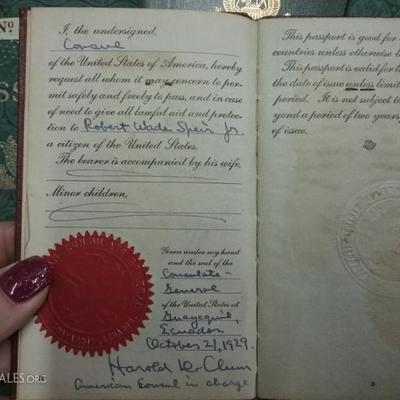 Nº
I, the undersigned,
Consul
of the United States of America, hereby
request all whom it may concern to per-
mit safely and freely to pass, and in case
of need to give all lawful aid and protec-
tion to Robert Wade Speir Jr.
a citizen of the United States.
The bearer is accompanied by his wife,
Minor children,
Given under my hand
and the seal of the
Consulate-
General
of the United States at
Guayaquil,
Ecuador
October 21, 1929.
Harold D. Clum
American Consul in charge
This passport is good for
countries unless otherwise
This passport is valid for
the date of issue unless limit
period. It is not subject to
yond a period of two years
of issue.
ALES.ORG